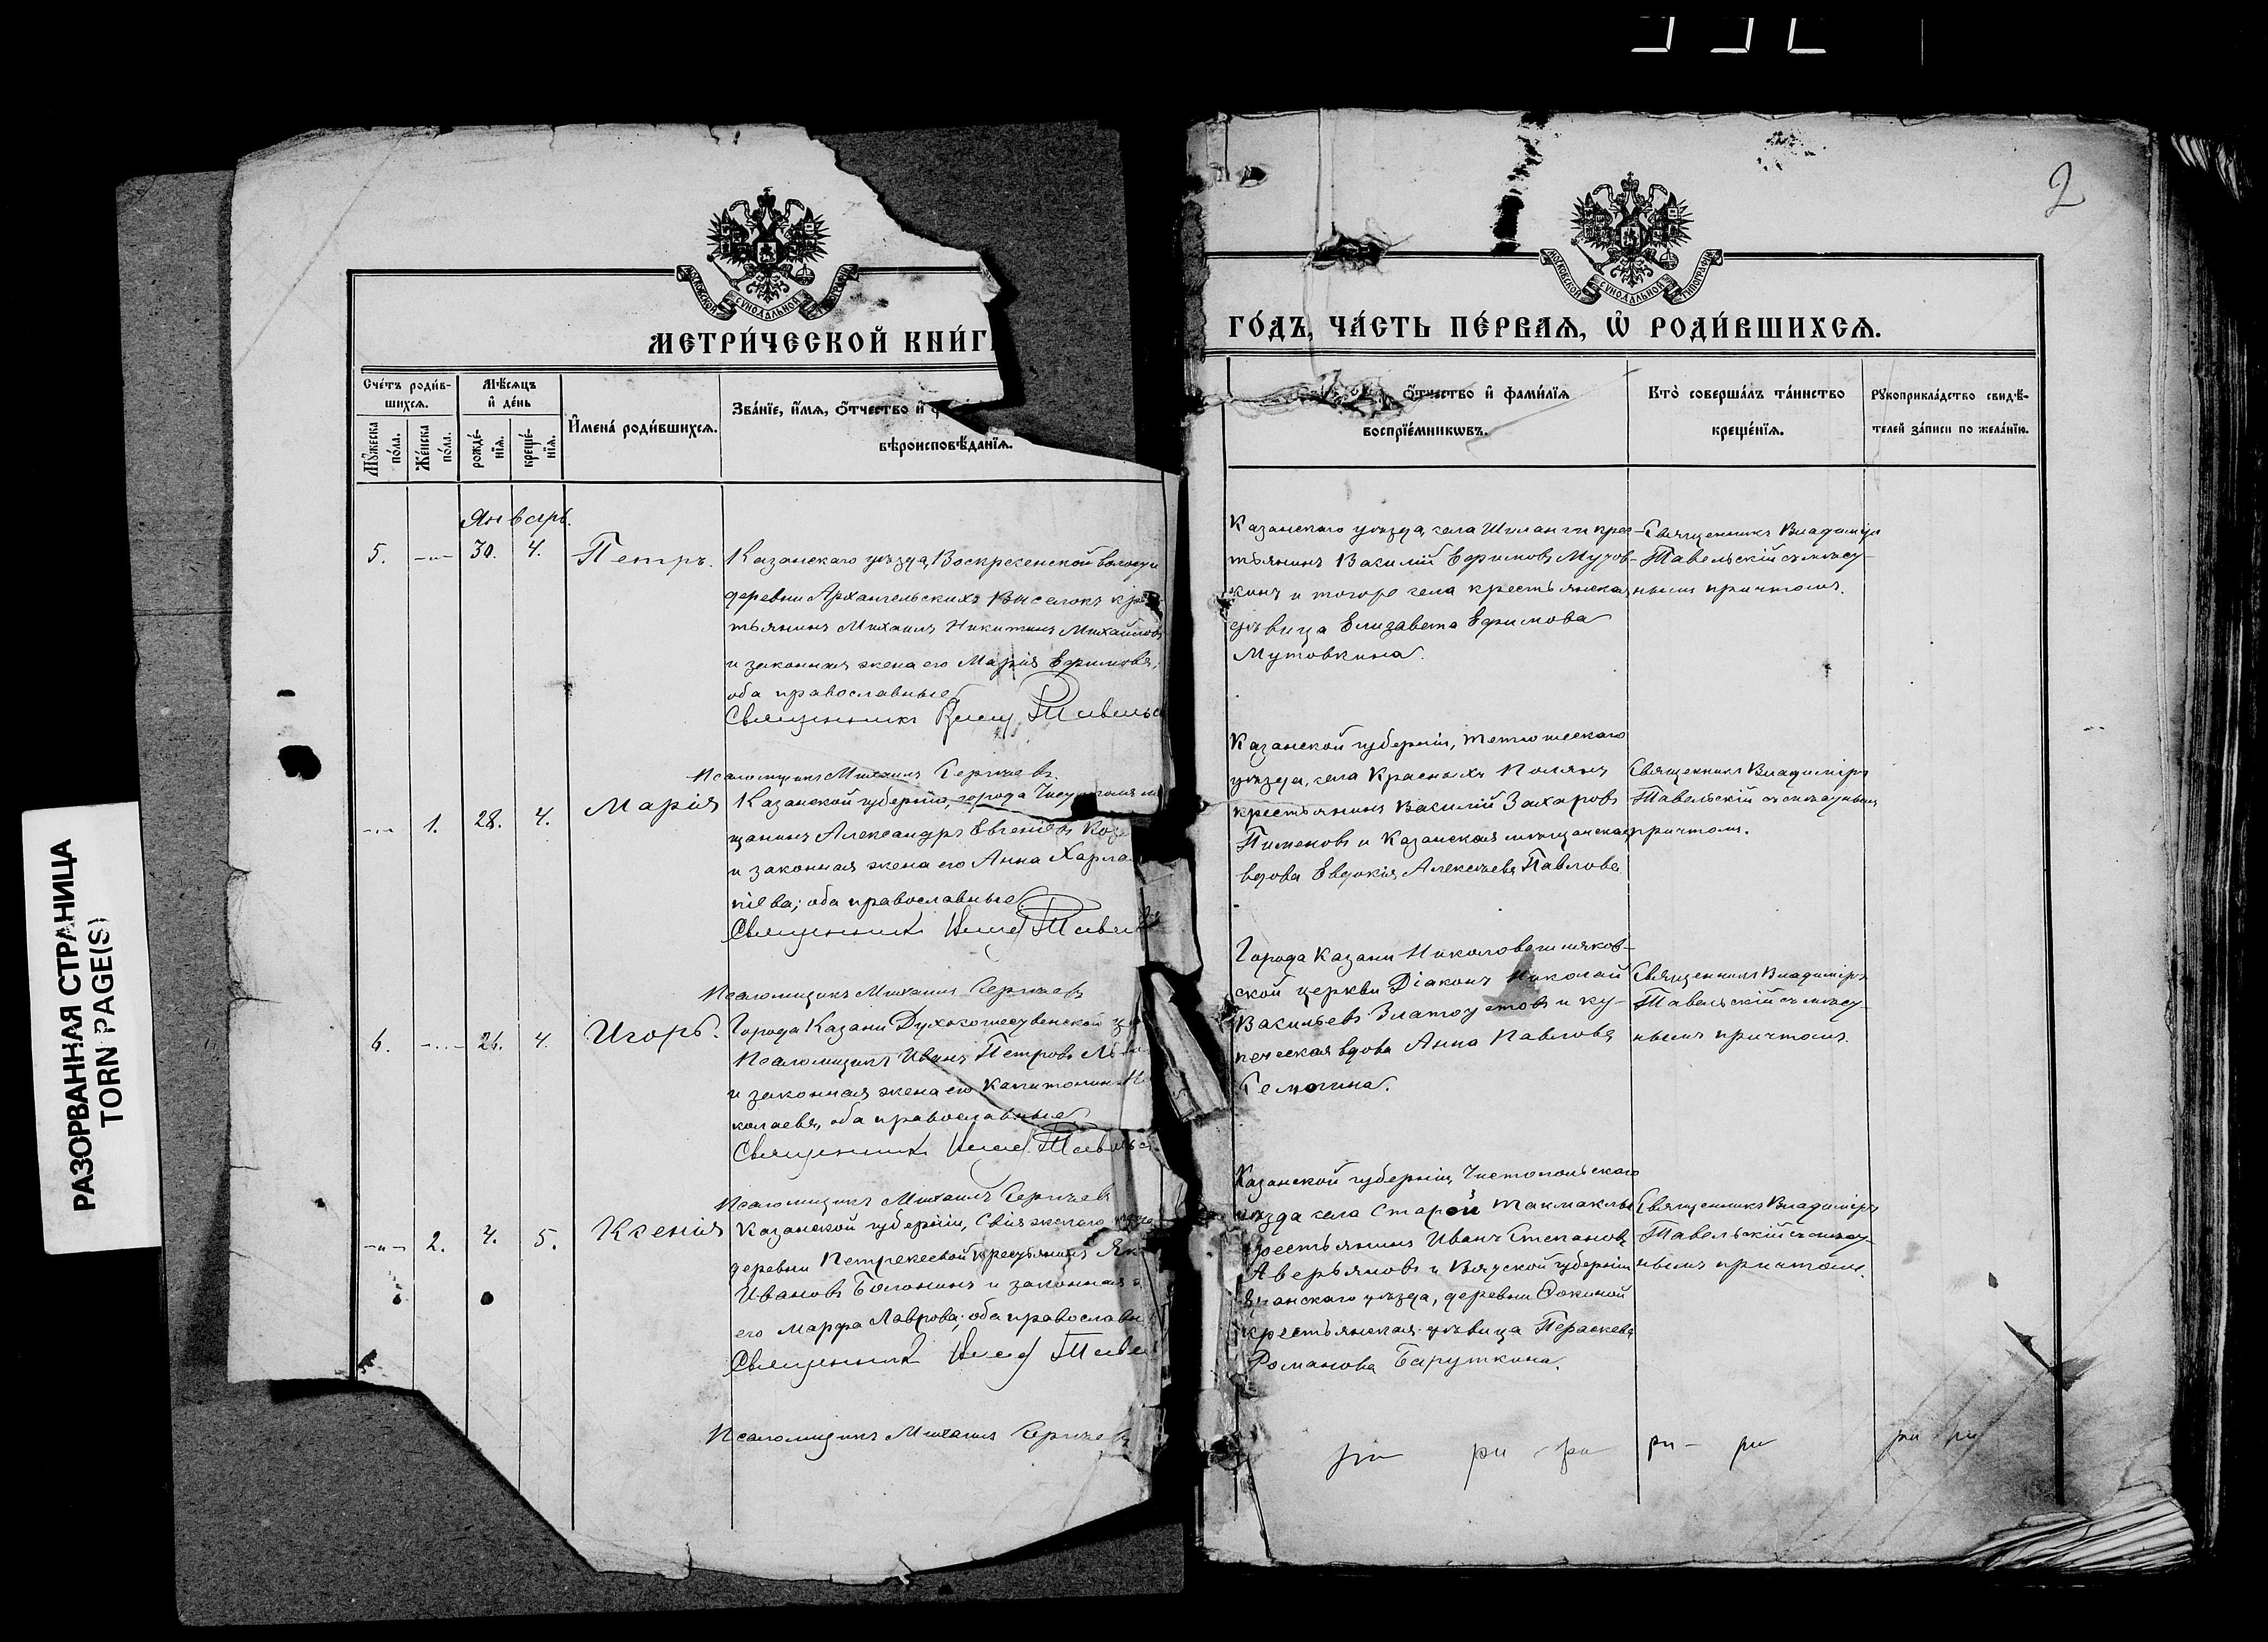 2
МОСКОВСКОЙ СУНОДАЛЬНОЙ ТИПОГРАФІИ
МЕТРИ́ЧЕСКОЙ КНИ́Г
ГО́ДЪ, ЧА́СТЬ ПЕ́РВАѦ, Ѡ РОДИ́ВШИХСѦ.
Сче́тъ роди́в-
шихсѧ.
Мꙋ́жеска по́ла.
Же́нска по́ла.
Мѣ́сѧцъ
и҆ де́нь
рожде́-
нїѧ.
креще́-
нїѧ.
И҆мена́ роди́вшихсѧ.
Зва́нїе, и҆́мѧ, ѻ҆́тчество и҆
вѣроисповѣ́данїѧ.
ѻ҆́тчество и҆ фами́лїѧ
воспрїе́мникѡвъ.
Кто̀ соверша́лъ та́инство
креще́нїѧ.
Рꙋкоприкла́дство свидѣ́-
телей за́писи по жела́нїю.
Январь.
5. -"- 30. 4. Петръ.
Казанскаго уѣзда, Воскресенской волости
деревни Архангельскихъ Выселокъ крес
тьянинъ Михаилъ Никитинъ Михайловъ
и законная жена его Марія Ефимова,
оба православные
Священникъ Тавельс
Псаломщикъ Михаилъ Сергѣевъ.
Казанскаго уѣзда, села Шиланги крес-
тьянинъ Василій Ефимовъ Мутов-
кинъ и тогоже села крестьянская
дѣвица Елизавета Ефимова
Мутовкина.
Священникъ Владиміръ
Тавельскій съ мѣст-
нымъ причтомъ.
-"- 1. 28. 4. Марія
Казанской губерніи, города Чистополя м
щанинъ Александръ Евгеніевъ Коз
и законная жена его Анна Харла
піева; оба православные
Священникъ Тавель
Псаломщикъ Михаилъ Сергѣевъ
Казанской губерніи, Тетюшскаго
уѣзда, села Красныхъ Полянъ
крестьянинъ Василій Захаровъ
Пименовъ и Казанская мѣщанская
вдова Евдокія Алексѣева Павлова
Священникъ Владиміръ
Тавельскій съ мѣстнымъ
причтомъ.
6. -"- 26. 4. Игорь.
Города Казани Духосошественской це
Псаломщикъ Иванъ Петровъ
и законная жена его Капитолина Ни
колаева, оба православные
Священникъ Тавельс
Псаломщикъ Михаилъ Сергѣевъ
Города Казани Николовешняков-
ской церкви Діаконъ Николай
Васильевъ Златоустовъ и ку-
печеская вдова Анна Павлова
Семогина.
Священникъ Владиміръ
Тавельскій съ мѣст-
нымъ причтомъ.
-"- 2. 4. 5. Ксенія
Казанской губерніи, Свіяжскаго уѣзда
деревни крестьянинъ Як
Ивановъ Болонинъ и законная ж
его Марфа Лаврова; оба православн
Священникъ Тавел
Псаломщикъ Михаилъ Сергѣевъ
Казанской губерніи, Чистопольскаго
уѣзда села Старой Такмаклы
крестьянинъ Иванъ Степановъ
Аверьяновъ и Вятской губерніи
уѣзда, деревни
крестьянская дѣвица Параскева
Романова Баруткина.
Священникъ Владиміръ
Тавельскій съ мѣст-
нымъ причтомъ.
РАЗОРВАННАЯ СТРАНИЦА
TORN PAGE(S)